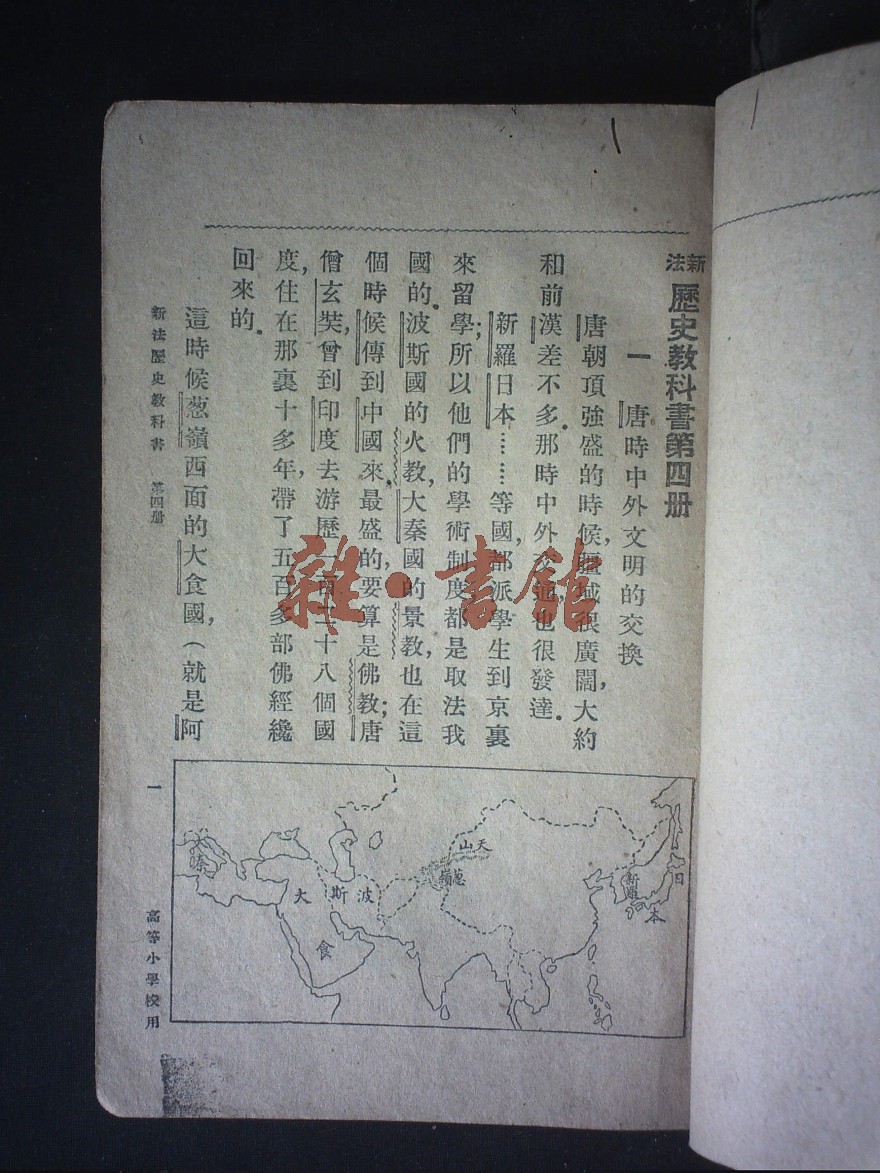 新法歷史教科書第四册
一　唐時中外文明的交換
唐朝頂強盛的時候，疆域很廣闊，大約
和前漢差不多。那時中外交通，也很發達。
新羅日本……等國，都派學生到京裏
來留學；所以他們的學術制度都是取法我
國的。波斯國的火教，大秦國的景教，也在這
個時候傳到中國來。最盛的，要算是佛教；唐
僧玄奘，曾到印度去游歷一百二十八個國
度，住在那裏十多年，帶了五百多部佛經纔
回來的。
這時候葱嶺西面的大食國，（就是阿
新法歷史教科書　第四册
一
高等小學校用
日本
新羅
天山
葱嶺
波斯
大食
大秦
雜·書館